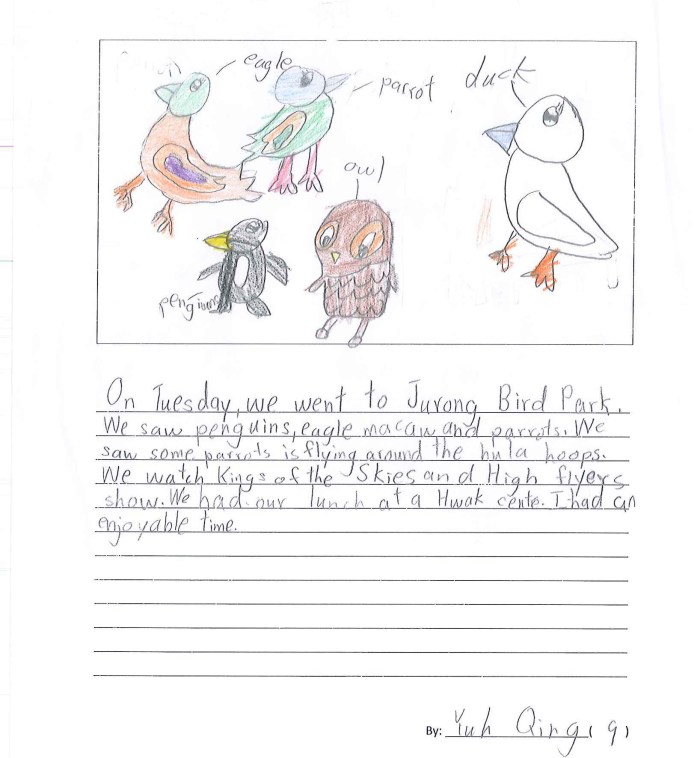 eagle
parrot
duck
owl
penguins
On Tuesday, we went to Jurong Bird Park.
We saw penguins, eagle macaw and parrots. We
saw some parrots is flying around the hula hoops.
We watch Kings of the Skies and High flyers
show. We had our lunch at a Hwak cente. I had an
enjoyable time.
By: Yuh Qing ( 9 )